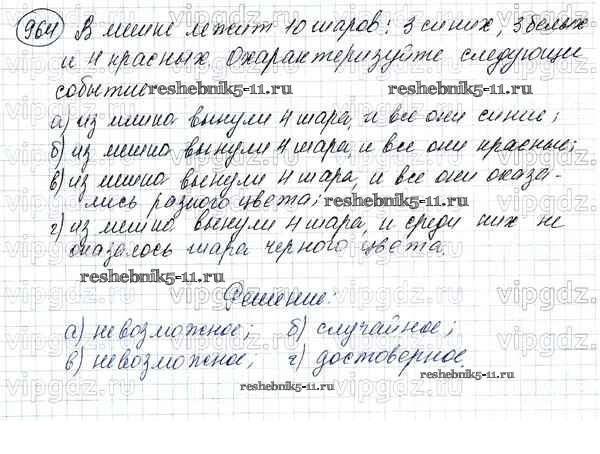 964 В мешке лежит 10 шаров: 3 синих, 3 белых
и 4 красных. Охарактеризуйте следующее
событие reshebnik5-11.ru reshebnik5-11.ru
а) из мешка вынули 4 шара, и все они синие;
б) из мешка вынули 4 шара, и все они красные;
в) из мешка вынули 4 шара, и все они оказа-
лись разного цвета; reshebnik5-11.ru
г) из мешка вынули 4 шара, и среди них не
оказалось шара черного цвета.
reshebnik5-11.ru
Решение:
а) невозможное; б) случайное;
в) невозможное; г) достоверное
reshebnik5-11.ru reshebnik5-11.ru
vipgdz.ru